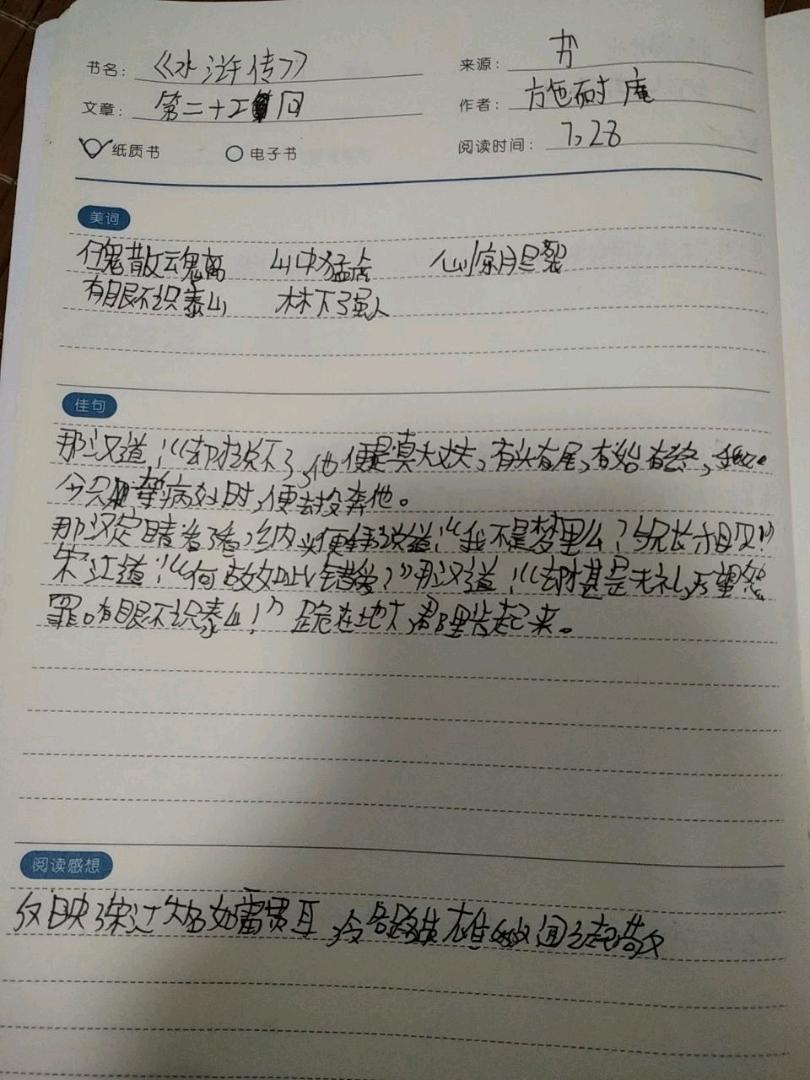 书名：《水浒传》 来源：书
文章：第二十二回 作者：施耐庵
纸质书 电子书 阅读时间：7，28
美词
魄散魂离 山中猛虎 心惊胆裂
有眼不识泰山 林下强人
佳句
那汉道：“却才说不了，他便是真大丈夫，有头有尾，有始有终，我如
今只等病好时，便去投奔他。
那汉定睛看了看，纳头便拜，说道：“我不是梦里么？与兄长相见！”
宋江道：“何故如此错爱？”那汉道：“却才甚是无礼，万望恕
罪。有眼不识泰山！”跪在地下，那里肯起来。
阅读感想
反映了宋江大名如雷贯耳，令各路英雄